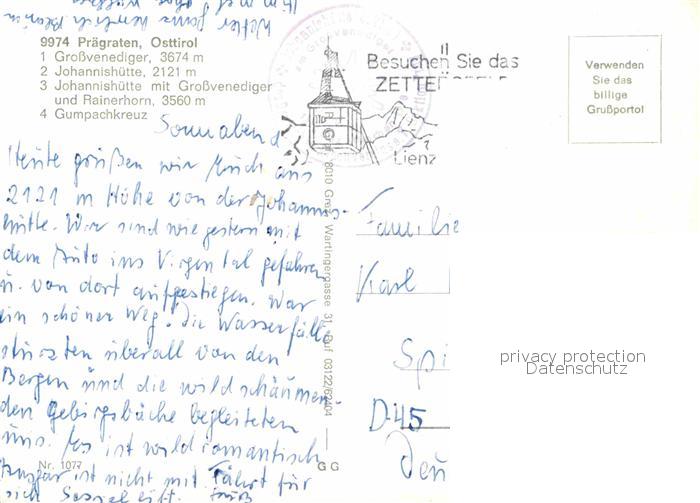 9974 Prägraten, Osttirol
1 Großvenediger, 3674 m
2 Johannishütte, 2121 m
3 Johannishütte mit Großvenediger
und Rainerhorn, 3560 m
4 Gumpachkreuz
Besuchen Sie das
Lienz
Verwenden
Sie das
billige
Grußporto!
Sonnabend
Heute grüßen wir Euch aus
2121 m Höhe von der Johannis-
hütte. Wir sind wie gestern mit
dem Auto ins Virgental gefahren
u. von dort aufgestiegen. War
ein schöner Weg! Die Wasserfälle
stürzten überall von den
Bergen und die wild schäumen-
den Gebirgsbäche begleiteten
uns. Es ist wildromantisch
ist nicht mit für
sich
Familie
Karl
Spi
D-45
privacy protection
Datenschutz
8010 Graz, Wartingergasse 31, Ruf 03122/62404
Nr. 1077
G G